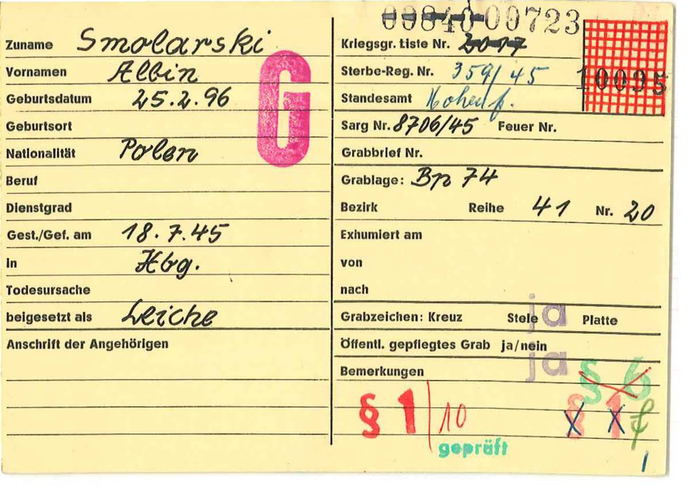 00840 00723
Zuname Smolarski
Vornamen Albin
Geburtsdatum 25.2.96
Geburtsort
Nationalität Polen
Beruf
Dienstgrad
Gest./Gef. am 18.7.45
in Hbg.
Todesursache
beigesetzt als Leiche
Anschrift der Angehörigen
G
Kriegsgr. Liste Nr. 2017
Sterbe-Reg. Nr. 359/45
10095
Standesamt
Sarg Nr. 8706/45 Feuer Nr.
Grabbrief Nr.
Grablage: Bp 74
Bezirk Reihe 41 Nr. 20
Exhumiert am
von
nach
Grabzeichen: Kreuz Stele ja Platte
Öffentl. gepflegtes Grab ja/nein
ja
Bemerkungen
§ 6
§ 1/10
§ 1
gepräft